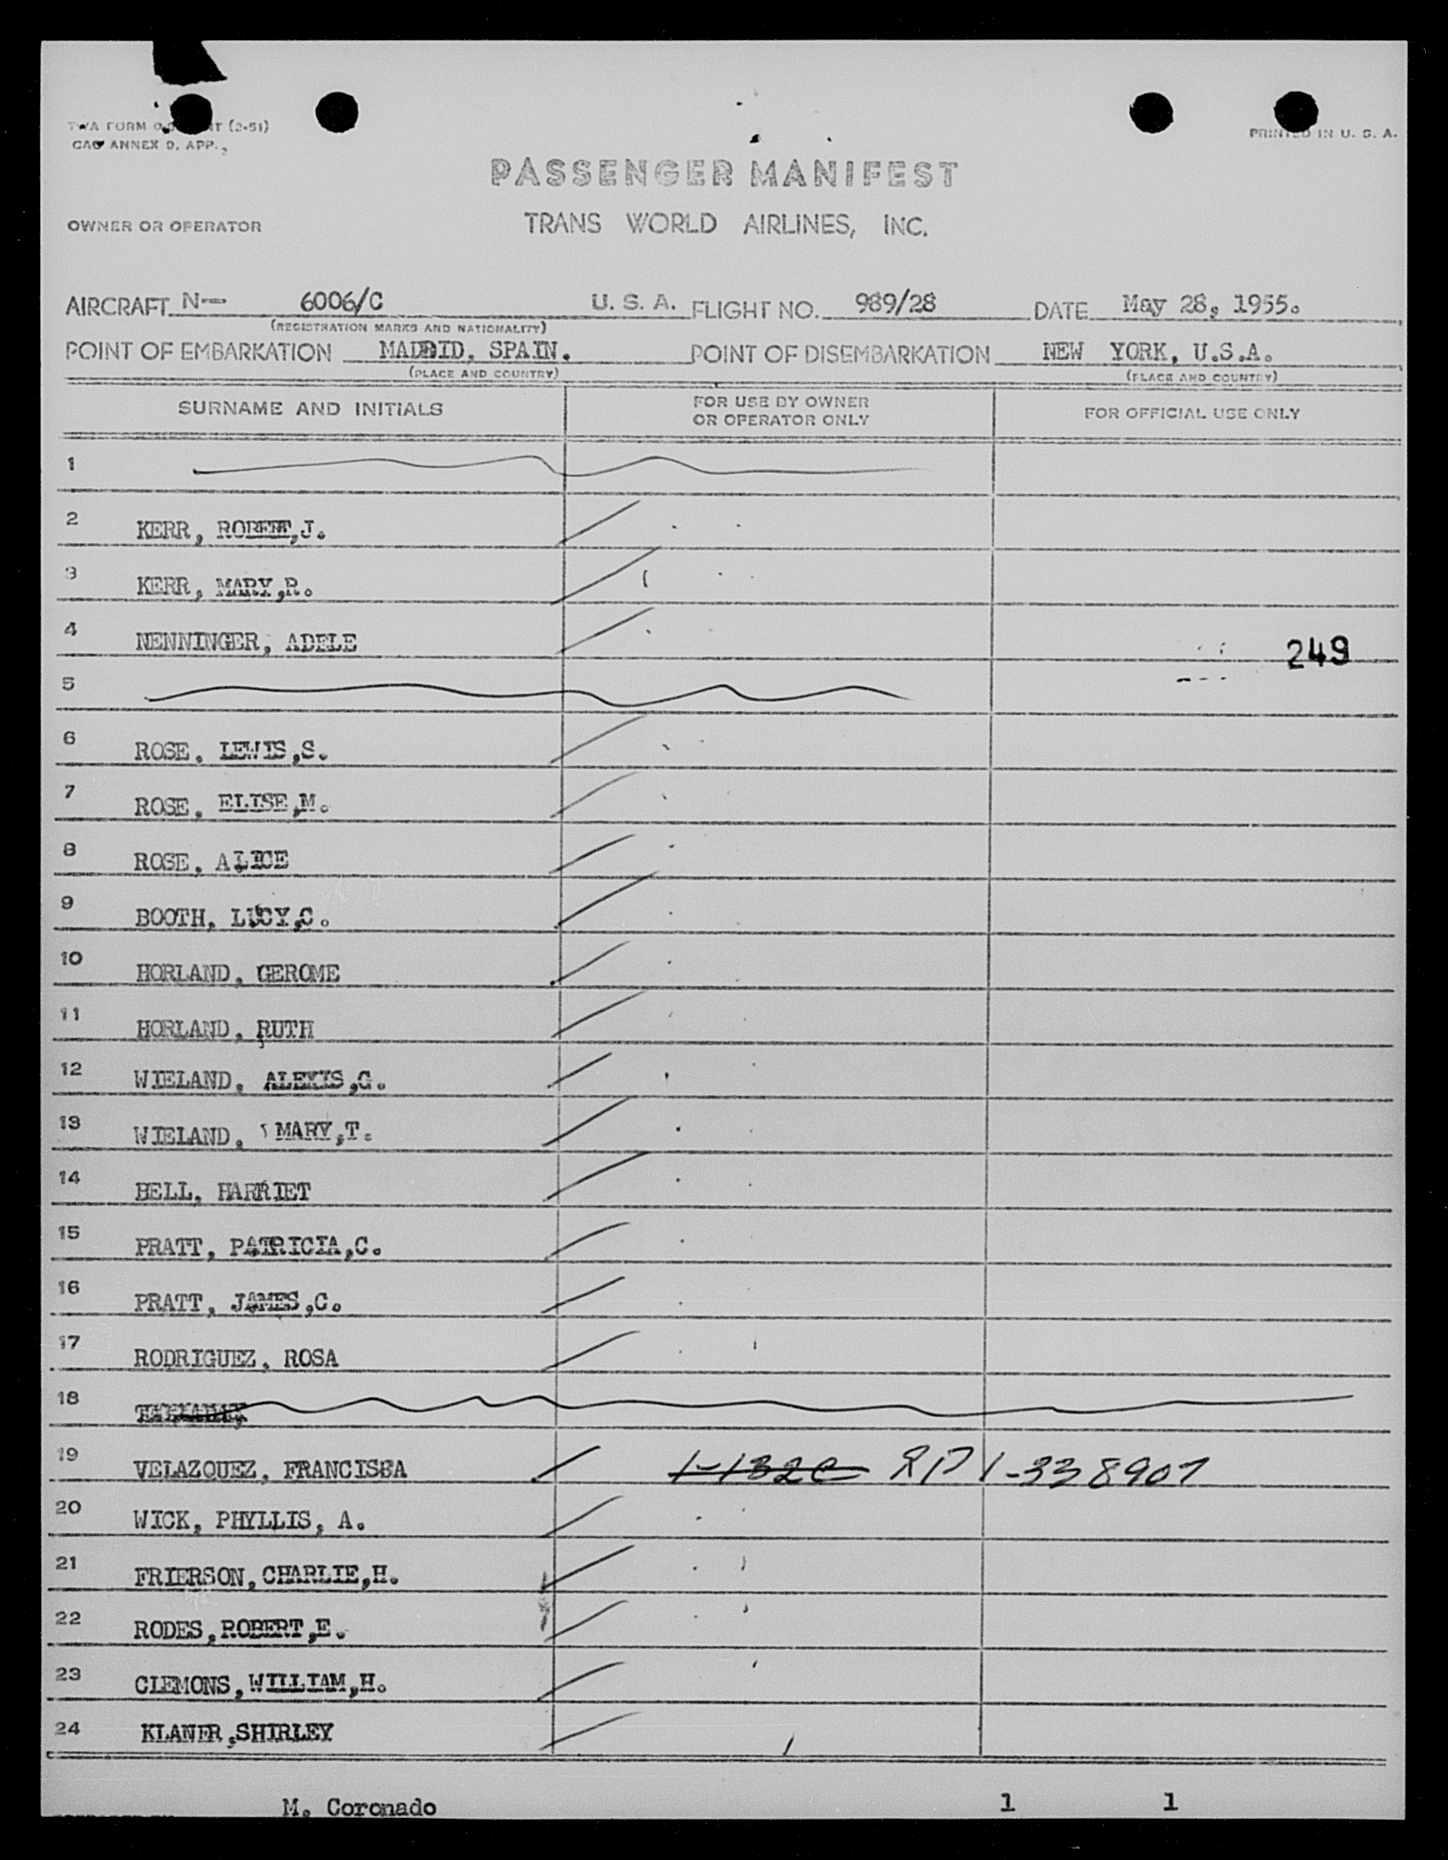 TWA FORM (2-51)
CAO ANNEX 9, APP.,
PRINTED IN U. S. A.
PASSENGER MANIFEST
OWNER OR OPERATOR TRANS WORLD AIRLINES, INC.
AIRCRAFT N-- 6006/C U. S. A. FLIGHT NO. 989/28 DATE May 28, 1955.
(REGISTRATION MARKS AND NATIONALITY)
POINT OF EMBARKATION MADRID, SPAIN. POINT OF DISEMBARKATION NEW YORK, U.S.A.
(PLACE AND COUNTRY) (PLACE AND COUNTRY)
SURNAME AND INITIALS FOR USE BY OWNER OR OPERATOR ONLY FOR OFFICIAL USE ONLY
1
2 KERR, ROBERT,J.
3 KERR, MARY,R.
4 NENNINGER, ADELE 249
5
6 ROSE, LEWIS,S.
7 ROSE, ELISE,M.
8 ROSE, ALICE
9 BOOTH, LUCY,C.
10 HORLAND, GEROME
11 HORLAND, RUTH
12 WIELAND, ALEXIS,G.
13 WIELAND, MARY,T.
14 BELL, HARRIET
15 PRATT, PATRICIA,C.
16 PRATT, JAMES,C.
17 RODRIGUEZ, ROSA
18
19 VELAZQUEZ, FRANCISSA 1-132C RP 1-338907
20 WICK, PHYLLIS, A.
21 FRIERSON, CHARLIE,H.
22 RODES,ROBERT,E.
23 CLEMONS,WILLIAM,H.
24 KLANER,SHIRLEY
M. Coronado 1 1